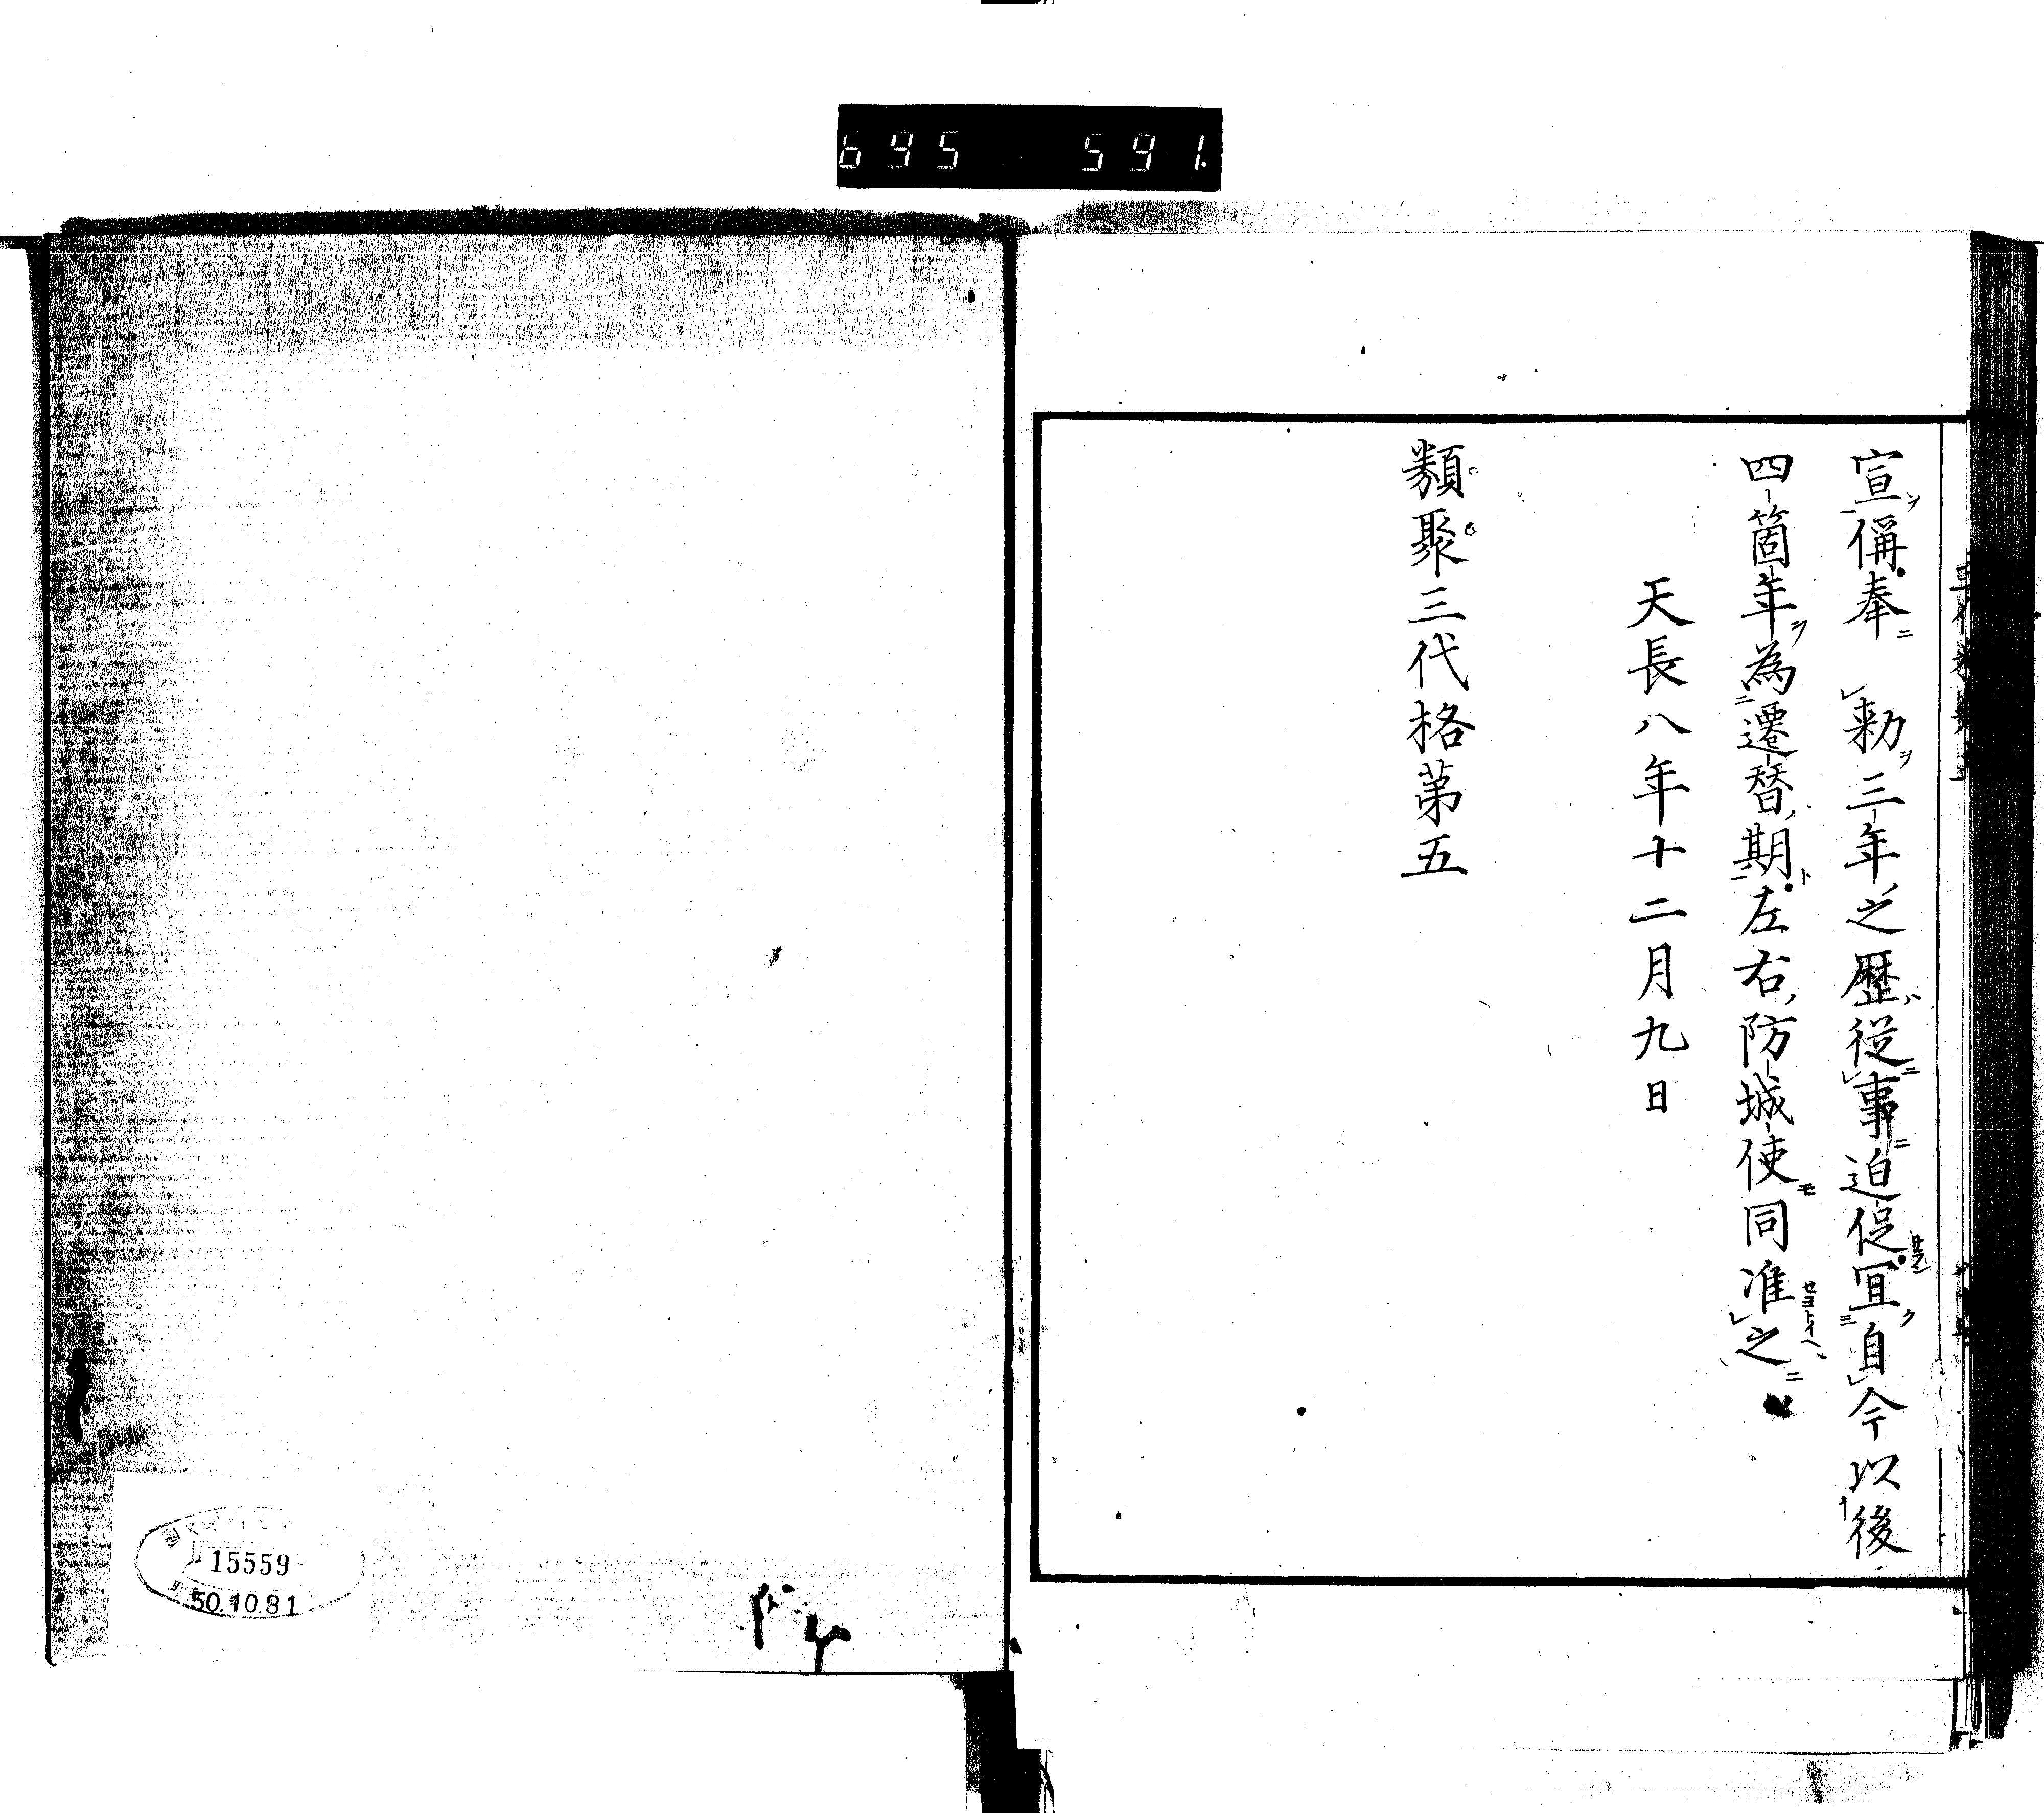 695 591.
宣稱奉 勅三年之歷從事迫促宜自今以後
四箇年為遷替期左右防城使同准之
天長八年十二月九日
類聚三代格第五
15559
50.10.31